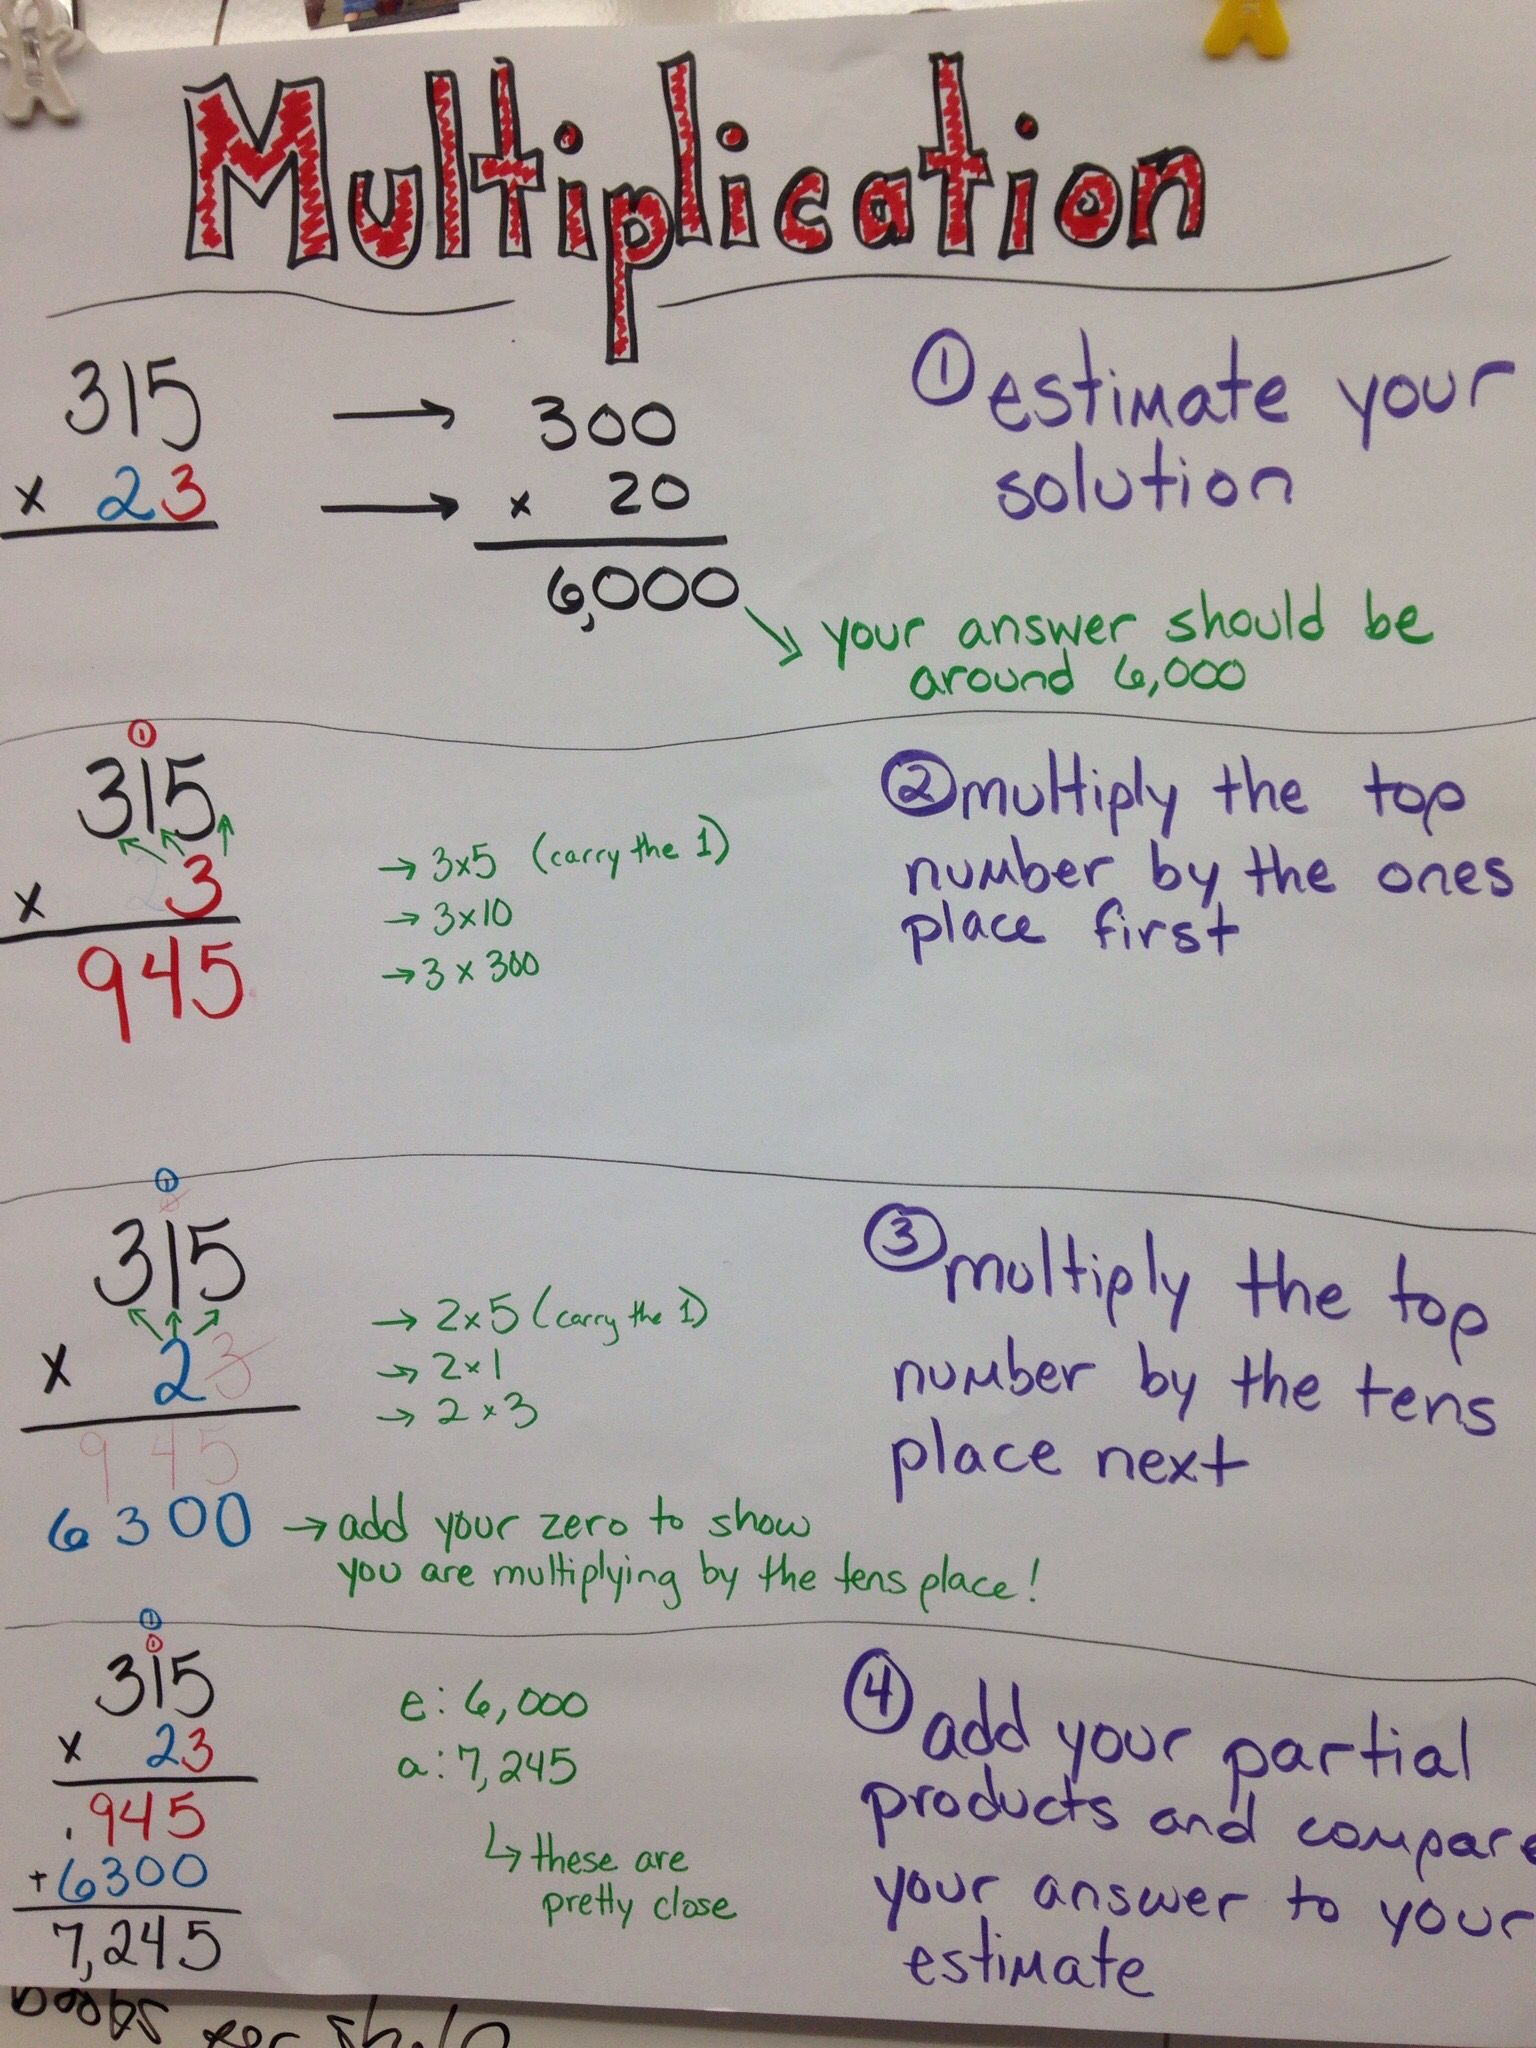 Multiplication
315 → 300
x 23 → x 20
6,000
① estimate your
solution
↘ your answer should be
around 6,000
①
315
x 23
945
→ 3x5 (carry the 1)
→ 3x10
→ 3 x 300
② multiply the top
number by the ones
place first
①
315
x 23
945
6300
→ 2x5 (carry the 1)
→ 2x1
→ 2 x 3
→ add your zero to show
you are multiplying by the tens place!
③ multiply the top
number by the tens
place next
①
①
315
x 23
945
+6300
7,245
e: 6,000
a: 7,245
↳ these are
pretty close
④ add your partial
products and compare
your answer to your
estimate
books